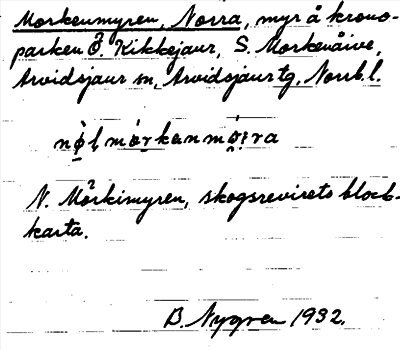 Morkenmyren, Norra, myr å krono-
parken Ö. Kikkejaur, S. Morkenåive,
Arvidsjaur sn, Arvidsjaur tg, Norrb. l.
N. Mörkimyren, skogsrevirets block-
karta.
B. Nygren 1932.